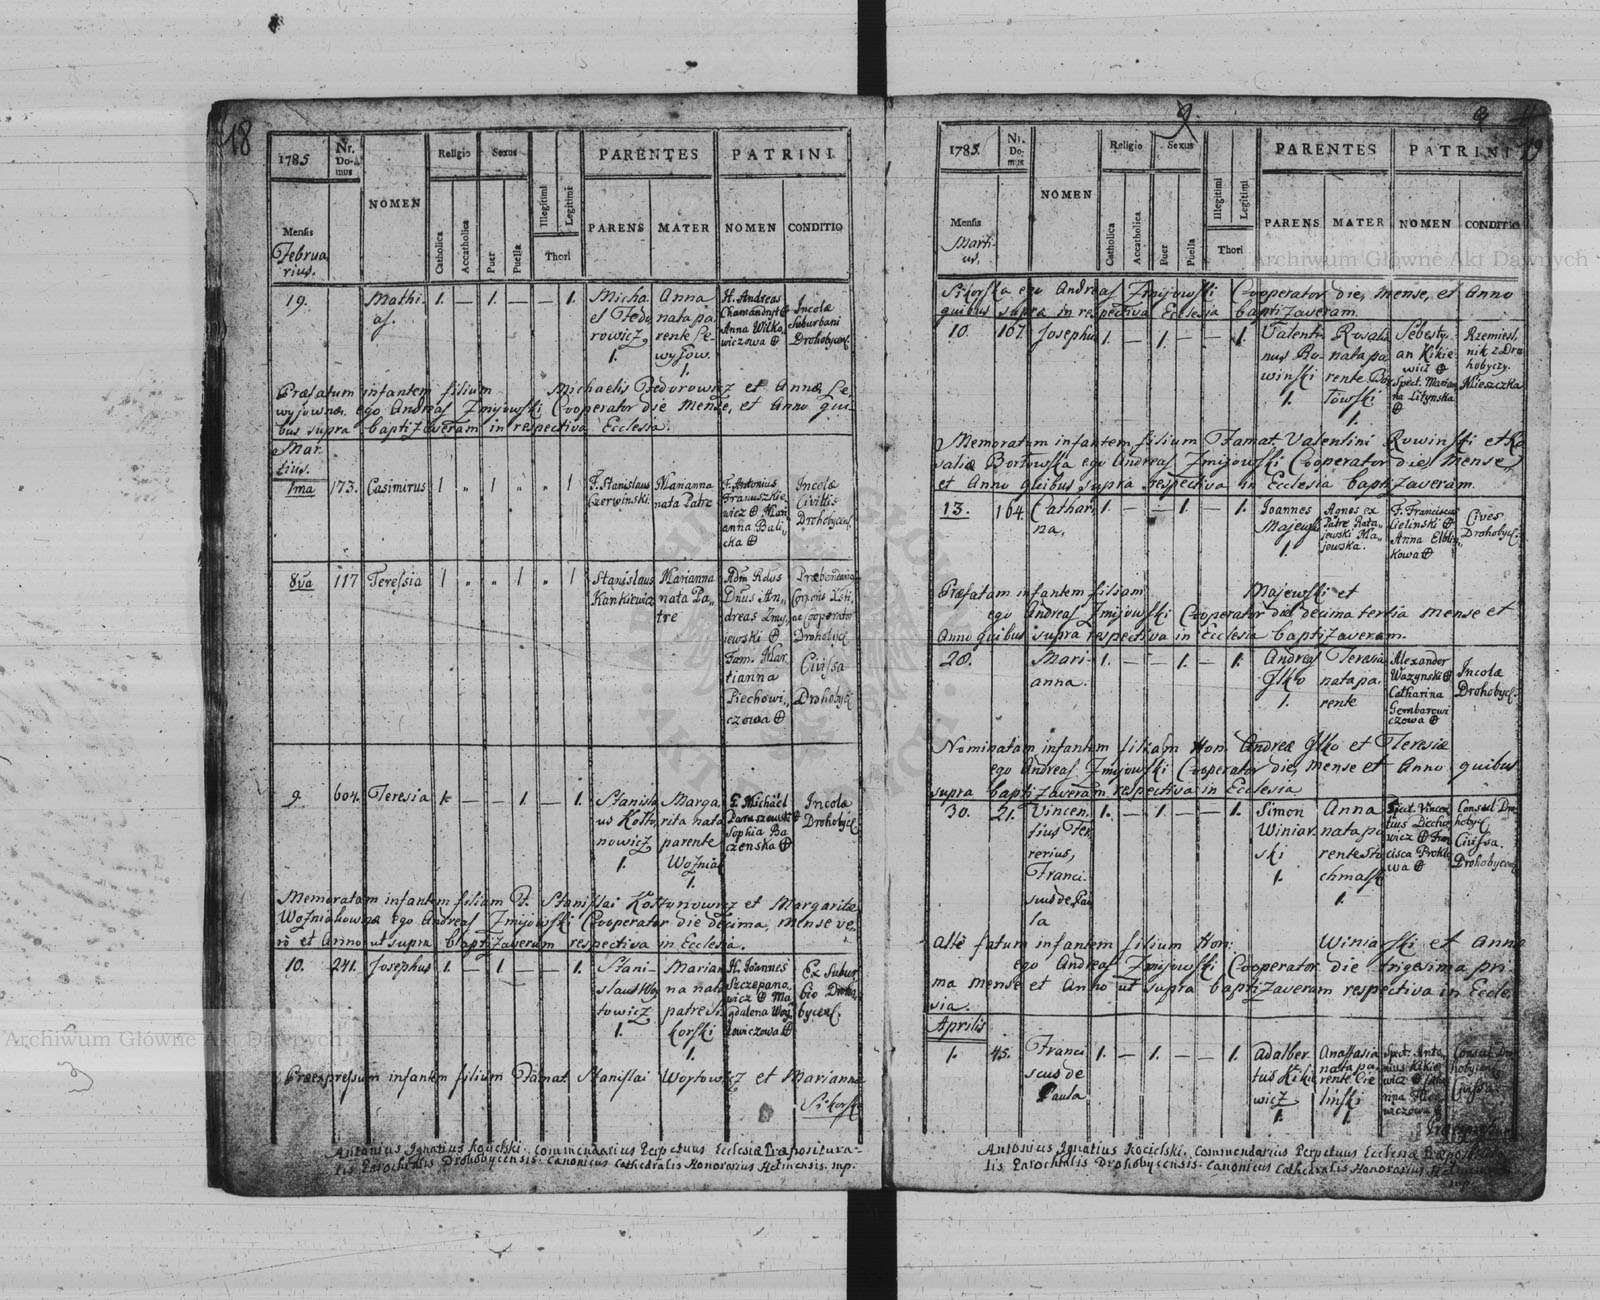 18
1785
Nr. Do- mus
NOMEN
Religio
Sexus
PARENTES
PATRINI
Mensis
Februa
rius.
Catholica
Accatholica
Puer
Puella
Illegitimi
Legitimi
Thori
PARENS
MATER
NOMEN
CONDITIO
19.
Mathi-
as.
1. — 1. — — 1.
Micha
el Fedo
rowicz
1.
Anna
nata pa
rente Le-
wyjow.
1.
H. Andreas
Anna Wilko
wiczowa
Incolæ
Suburbani
Drohobycens.
Præfatum infantem filium Michaelis Fedorowicz et Annæ Le
wyjowna, ego Andreas Zmijowski Cooperator die Mense, et Anno qui-
bus supra baptizaveram in respectiva Ecclesia.
Mar
tius.
1ma
173.
Casimirus
1 " 1 " " 1
F. Stanislaus
Czerwinski
Marianna
nata Patre
F. Antonius
Franuszkie
wicz Mari
anna Bali
cka
Incolæ
Civitis
Drohobycens.
8va
117
Teressia
1 " " 1 " 1
Stanislaus
Kankiewicz
Marianna
nata Pa
tre
Adm Rdus
Dnus An
dreas Zmy
jewski
Fam. Mar
tianna
Piechowi
czowa
Præbendarius
Corporis Xsti
ac Cooperator
Drohobyc.
Civissa
Drohobyc.
9.
604.
Teresia
1. — — 1. — 1.
Stanisla
us Kołto
nowicz
1.
Marga
rita nata
parente
Woźniak
1.
F. Michäel
Paraszewski
Sophia Ba
czenska
Incolæ
Drohobyc.
Memoratam infantem filiam Stanislai Kołtonowicz et Margaritæ
Woźniakowna ego Andreas Zmijowski Cooperator die decima, mense ve
rò et Anno ut supra baptizaveram respectiva in Ecclesia.
10.
241.
Josephus
1. — 1. — — 1.
Stani-
slaus Woy
towicz
1.
Marian
na nata
patre Si
korski
1.
H. Joannes
Szczepano
wicz Ma
gdalena Woy
towiczowa
Ex Subur
bio Droho
bycens.
Præexpressum infantem filium Famat. Stanislai Woytowicz et Marianna
Sikorska
Antonius Ignatius Kocielski Commendarius Perpetuus Ecclesiæ Præpositura-
lis Parochialis Drohobycensis. Canonicus Cathedralis Honorarius Helmensis. mp.
19
1785.
Nr. Do- mus
NOMEN
Religio
Sexus
PARENTES
PATRINI
Mensis
Marti-
us.
Catholica
Accatholica
Puer
Puella
Illegitimi
Legitimi
Thori
PARENS
MATER
NOMEN
CONDITIO
Sikorska ego Andreas Zmijowski Cooperator die, mense, et Anno
quibus supra in respectiva Ecclesia baptizaveram.
10.
167.
Josephus
1. — 1. — — 1.
Valenti
nus Ro-
winski
1.
Rosalia
nata pa
rente Bor
towski
1.
Sebesty-
an Kikie
wicz
Spect. Marian
na Litynska
Rzemiesl
nik z Dro
hobyczy.
Mieszczka
Memoratum infantem filium Famat. Valentini Rowinski et Ro
saliæ Bortowska ego Andreas Zmijowski Cooperator die, mense,
et Anno quibus supra respectiva in Ecclesia baptizaveram.
13.
164.
Cathar
na,
1. — — 1. — 1.
Joannes
Majewski
1.
Agnes ex
Patre Rata
jewski Ma
jewska.
F. Franciscus
Cielinski
Anna Elblin
kowa
Cives
Drohobyc.
Præfatam infantem filiam Majewski et
ego Andreas Zmijowski Cooperator die decima tertia mense et
Anno quibus supra respectiva in Ecclesia baptizaveram.
28.
Mari-
anna.
1. — — 1. — 1.
Andreas
Ilko
1.
Teresia
nata pa-
rente
Alexander
Wazynski
Catharina
Gembarowi
czowa
Incolæ
Drohobyc.
Nominatam infantem filiam Hon. Andreæ Ilko et Teresiæ
ego Andreas Zmijowski Cooperator die, mense et Anno quibus
supra baptizaveram respectiva in Ecclesia
30.
21.
Vincen
tius Fer
rerius,
Franci-
scus de Pau
la
1. — 1. — — 1.
Simon
Winiar
ski
1.
Anna
nata pa
rente Sto
chmalski
1.
Spect. Vincen
tius Piecho
wicz Fran
cisca Prokto
wa
Consul Dro
hobyc.
Civissa
Drohobycens.
Alle fatum infantem filium Hon: Winiarski et Anna
ego Andreas Zmijowski Cooperator die trigesima pri
ma mense et Anno ut supra baptizaveram respectiva in Eccle
sia.
Aprilis
1.
45.
Franci
scus de
Paula
1. — 1. — — 1.
Adalber
tus Kikie
wicz
1.
Anastasia
nata pa
rente Cie
linski
1.
Spect. Anto
nius Kikie
wicz
wiczowa
Consul Dro
hobycens.
Civissa
Antonius Ignatius Kocielski. Commendarius Perpetuus Ecclesiæ Præpositura
lis Parochialis Drohobycensis. Canonicus Cathedralis Honorarius Helmensis
mp.
Archiwum Główne Akt Dawnych
Archiwum Główne Akt Dawnych